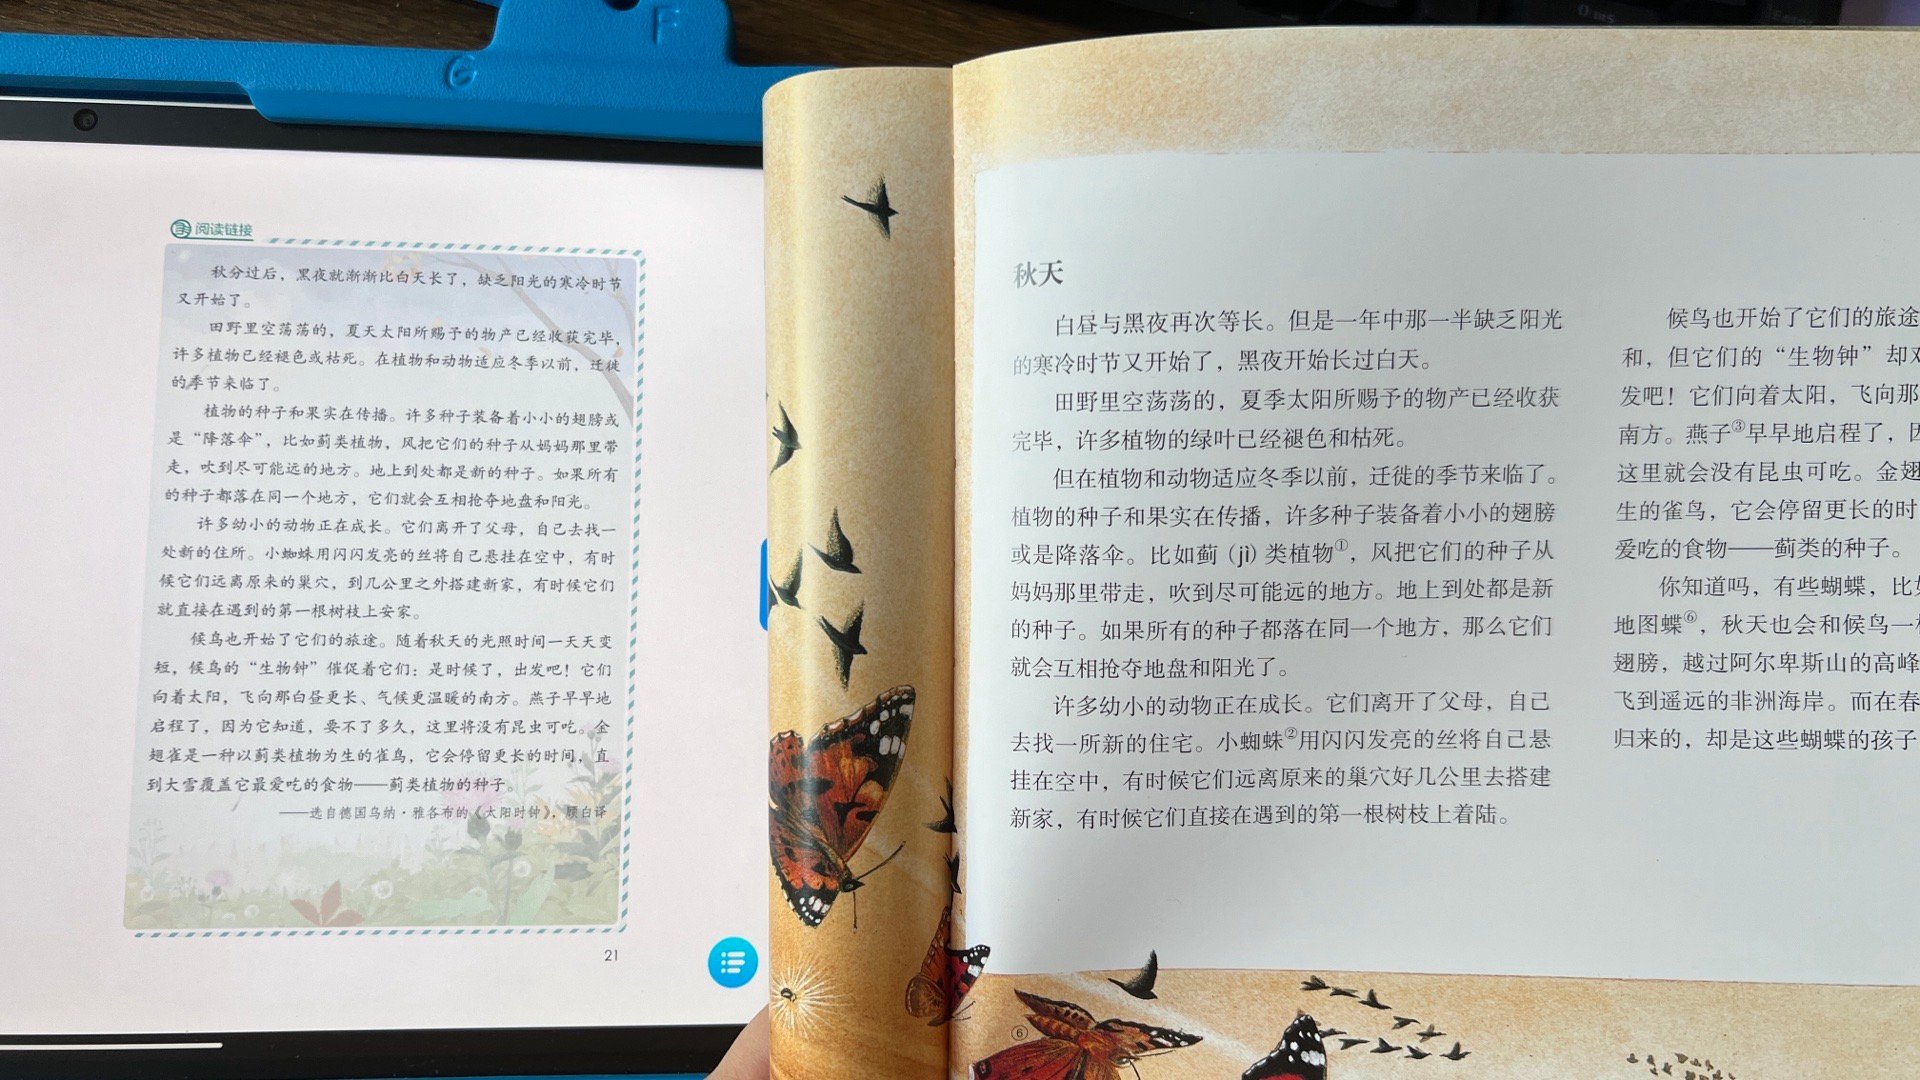 F
6
阅读链接
秋分过后，黑夜就渐渐比白天长了，缺乏阳光的寒冷时节
又开始了。
田野里空荡荡的，夏天太阳所赐予的物产已经收获完毕，
许多植物已经褪色或枯死。在植物和动物适应冬季以前，迁徙
的季节来临了。
植物的种子和果实在传播。许多种子装备着小小的翅膀或
是“降落伞”，比如蓟类植物，风把它们的种子从妈妈那里带
走，吹到尽可能远的地方。地上到处都是新的种子。如果所有
的种子都落在同一个地方，它们就会互相抢夺地盘和阳光。
许多幼小的动物正在成长。它们离开了父母，自己去找一
处新的住所。小蜘蛛用闪闪发亮的丝将自己悬挂在空中，有时
候它们远离原来的巢穴，到几公里之外搭建新家，有时候它们
就直接在遇到的第一根树枝上安家。
候鸟也开始了它们的旅途。随着秋天的光照时间一天天变
短，候鸟的“生物钟”催促着它们：是时候了，出发吧！它们
向着太阳，飞向那白昼更长、气候更温暖的南方。燕子早早地
启程了，因为它知道，要不了多久，这里将没有昆虫可吃。金
翅雀是一种以蓟类植物为生的雀鸟，它会停留更长的时间，直
到大雪覆盖它最爱吃的食物——蓟类植物的种子。
——选自德国乌纳·雅各布的《太阳时钟》，顾白译
21
秋天
白昼与黑夜再次等长。但是一年中那一半缺乏阳光
的寒冷时节又开始了，黑夜开始长过白天。
田野里空荡荡的，夏季太阳所赐予的物产已经收获
完毕，许多植物的绿叶已经褪色和枯死。
但在植物和动物适应冬季以前，迁徙的季节来临了。
植物的种子和果实在传播，许多种子装备着小小的翅膀
或是降落伞。比如蓟（jì）类植物①，风把它们的种子从
妈妈那里带走，吹到尽可能远的地方。地上到处都是新
的种子。如果所有的种子都落在同一个地方，那么它们
就会互相抢夺地盘和阳光了。
许多幼小的动物正在成长。它们离开了父母，自己
去找一所新的住宅。小蜘蛛②用闪闪发亮的丝将自己悬
挂在空中，有时候它们远离原来的巢穴好几公里去搭建
新家，有时候它们直接在遇到的第一根树枝上着陆。
候鸟也开始了它们的旅途
和，但它们的“生物钟”却
发吧！它们向着太阳，飞向那
南方。燕子③早早地启程了，因
这里就会没有昆虫可吃。金翅
生的雀鸟，它会停留更长的时
爱吃的食物——蓟类的种子。
你知道吗，有些蝴蝶，比如
地图蝶⑥，秋天也会和候鸟一
翅膀，越过阿尔卑斯山的高峰
飞到遥远的非洲海岸。而在春
归来的，却是这些蝴蝶的孩子
⑥